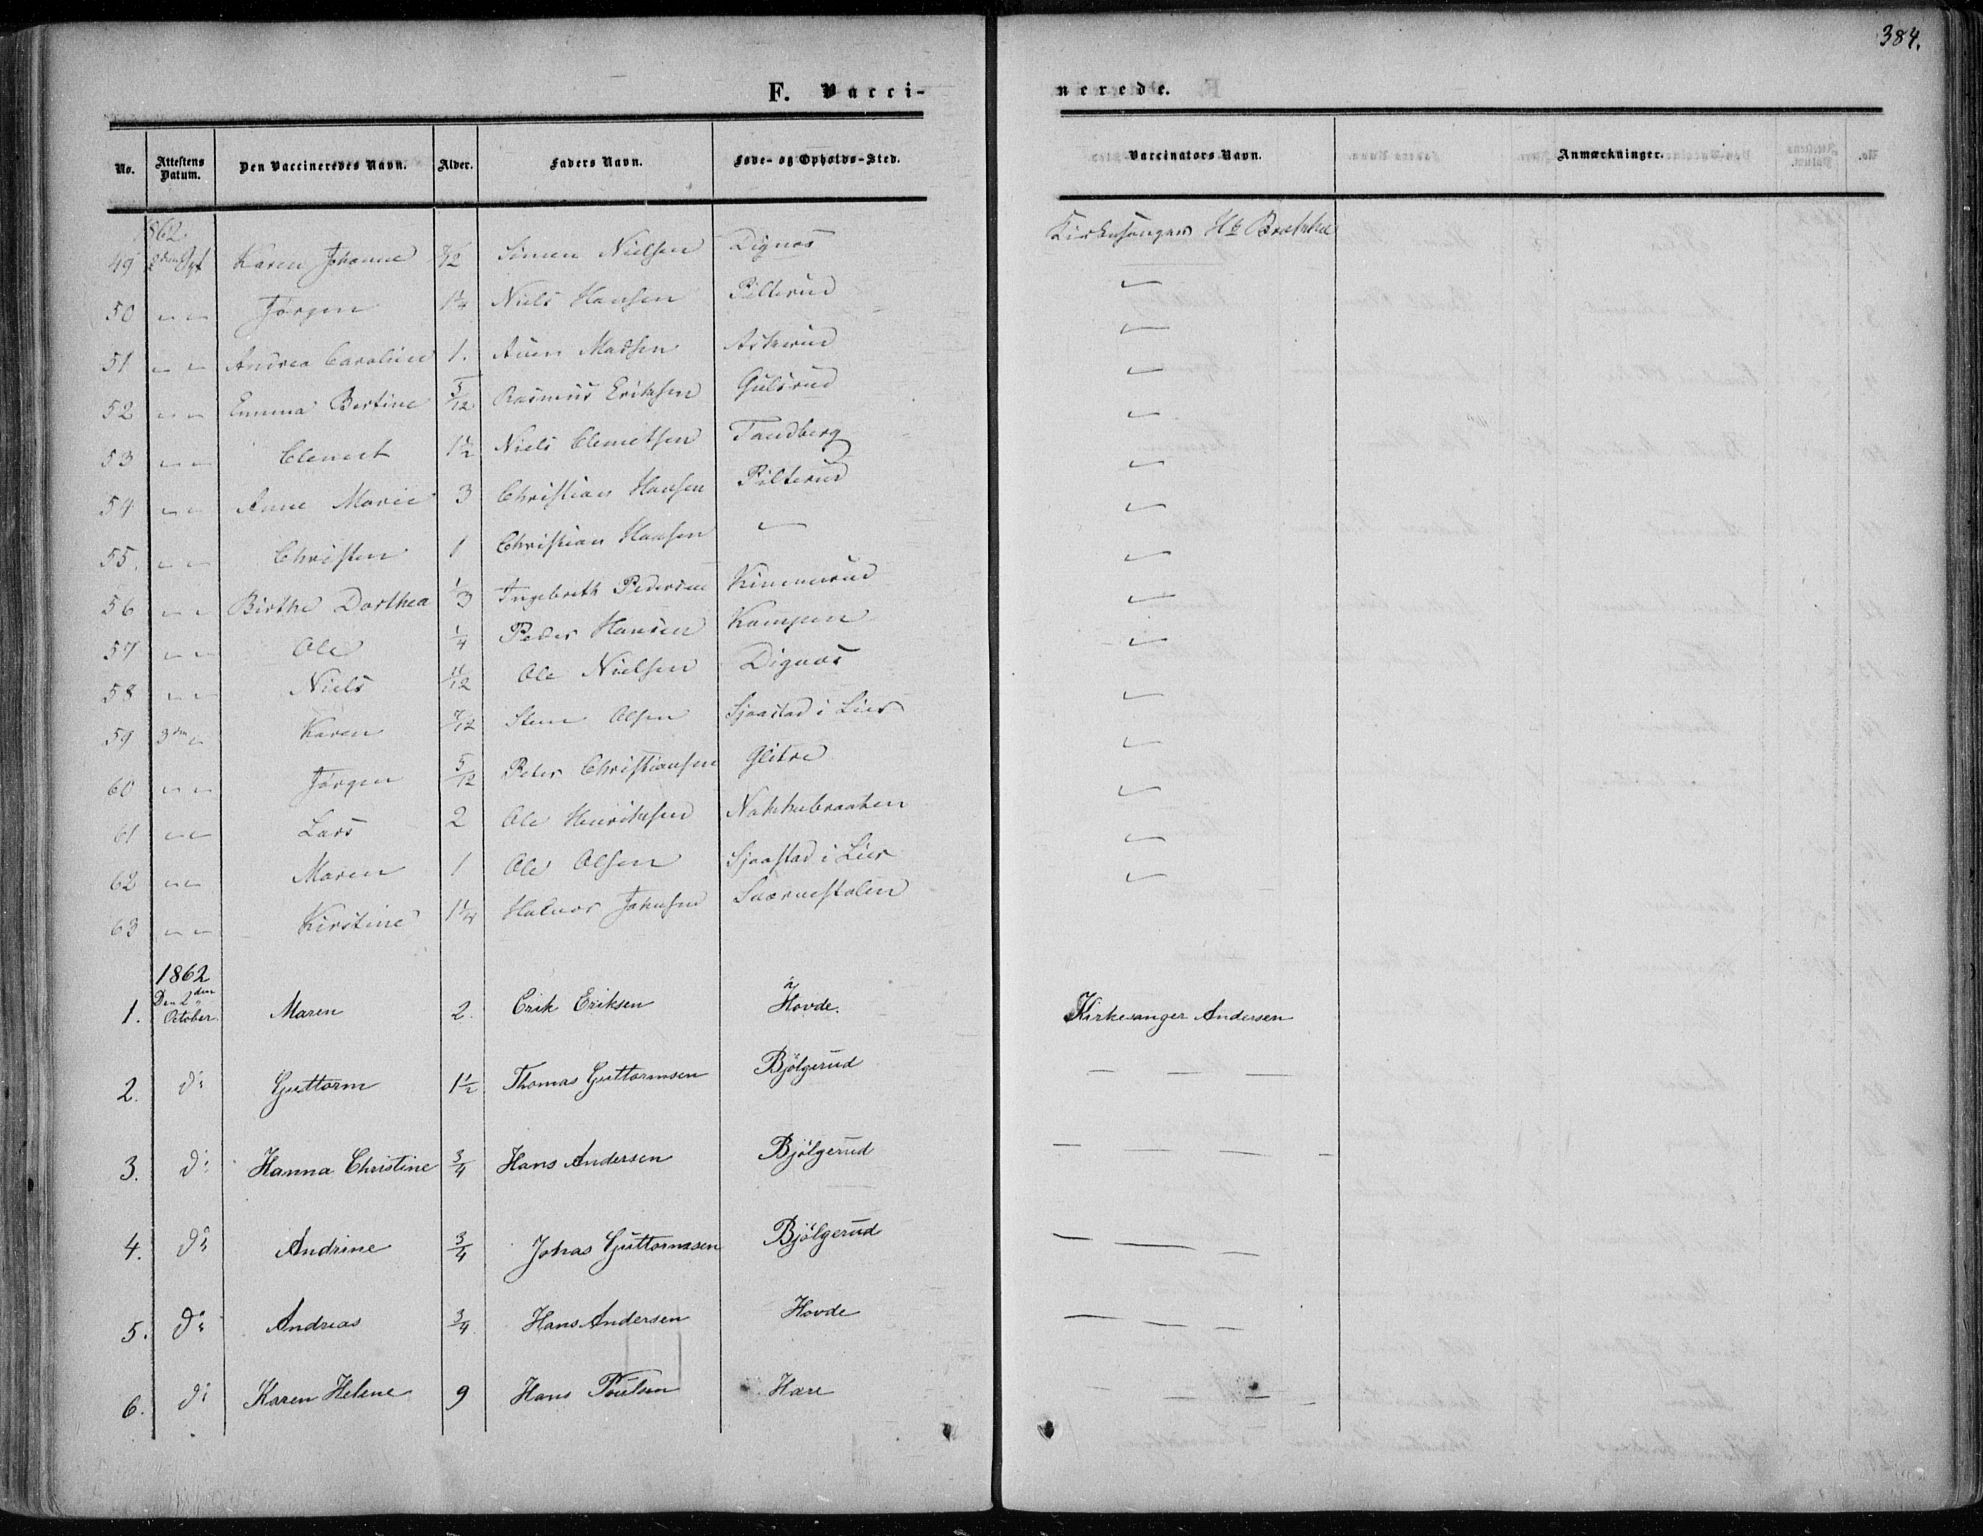 384.
F. Vacci-
nerede.
No. Attestens Datum. Den Vaccineredes Navn. Alder. Faders Navn. Føde- og Opholds-Sted. Vaccinators Navn. Anmærkninger.
1862.
49 2den Karen Johanne Simen Nielsen Dignæs Kirkesanger
50 " " Jørgen 1¼ Niels Hansen Pilterud "
51 " " Andrea Caroline 1. Madsen Askerud "
52 " " Emma Bertine 5/12 Rasmus Eriksen Gulsrud "
53 " " Clemet 1½ Niels Clemetsen Tandberg "
54 " " Anne Marie 3 Christian Hansen Pilterud "
55. " " Christen 1 Christian Hansen " "
56 " " Birthe Dorthea 1/3 Ingebreth Pedersen Kimmerud "
57 " " Ole ¼ Peder Hansen Kampen "
58 " " Niels 11/12 Ole Nielsen Dignæs "
59 3die " Karen 7/12 Steen Olsen Sjaastad i Lier "
60 " " Jørgen 5/12 Peter Christiansen Glitre "
61 " " Lars 2 Ole Henriksen Nakkebraaten "
62 " " Maren 1 Ole Olsen Sjaastad i Lier "
63 " " Kirstine 1¼ Halvor Johnsen "
1862
1. Den 2den October. Maren 2. Erik Eriksen Hovde. Kirkesanger Andersen
2. do Guttorm 1½ Thomas Guttormsen Bjölgerud — — —
3. do Hanna Christine ¾ Hans Andersen Bjölgerud — — — —
4. do Andrine ¾ Johas Guttormsen Bjölgerud — — —
5. do Andreas ¾ Hans Andersen Hovde — — — —
6. do Karen Helene 9 Hans Poulsen Hære — — — —